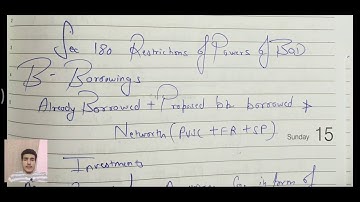 Sec 180 Restrictions of Powers of BOD
B - Borrowings
Already Borrowed + Proposed to be borrowed >
Networth (PUSC + FR + SP)
Sunday 15
Investments
in form of